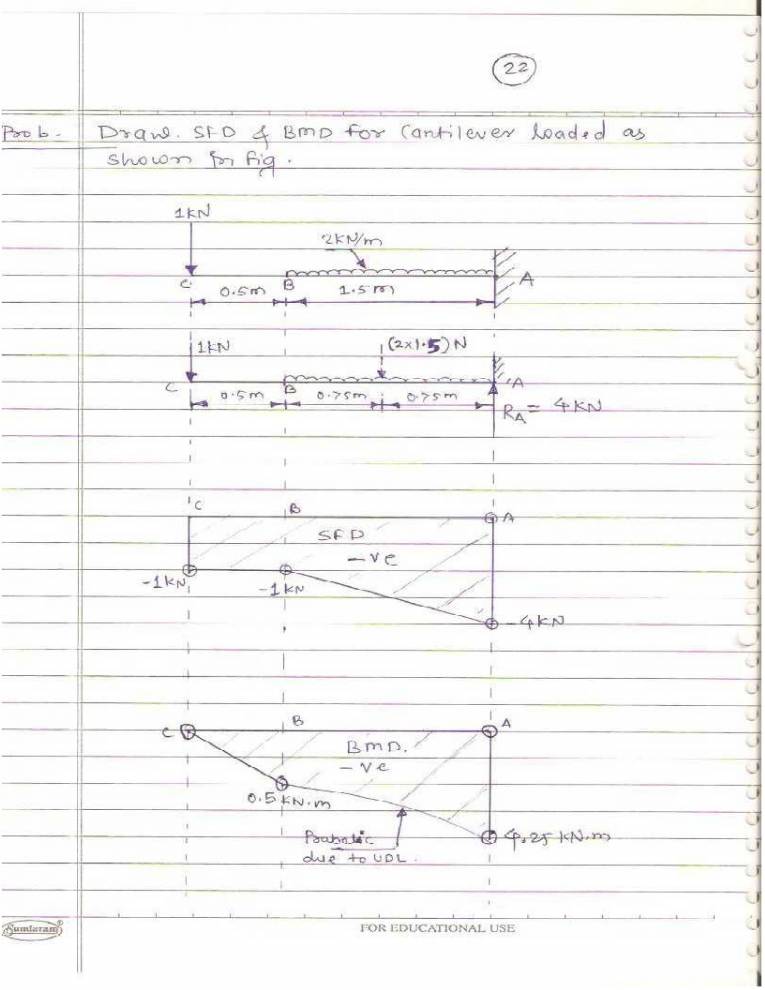 22
Prob. Draw. SFD & BMD for Cantilever loaded as
shown in fig.
1KN
2KN/m
C 0.5m B 1.5m A
1KN (2x1.5) N
C B A
0.5m 0.75m 0.75m
RA = 4KN
C B A
SFD
-ve
-1KN -1KN
-4KN
C B A
BMD.
-ve
0.5 KN.m
4.25 KN.m
Prabolic
due to UDL.
Sundaram
FOR EDUCATIONAL USE